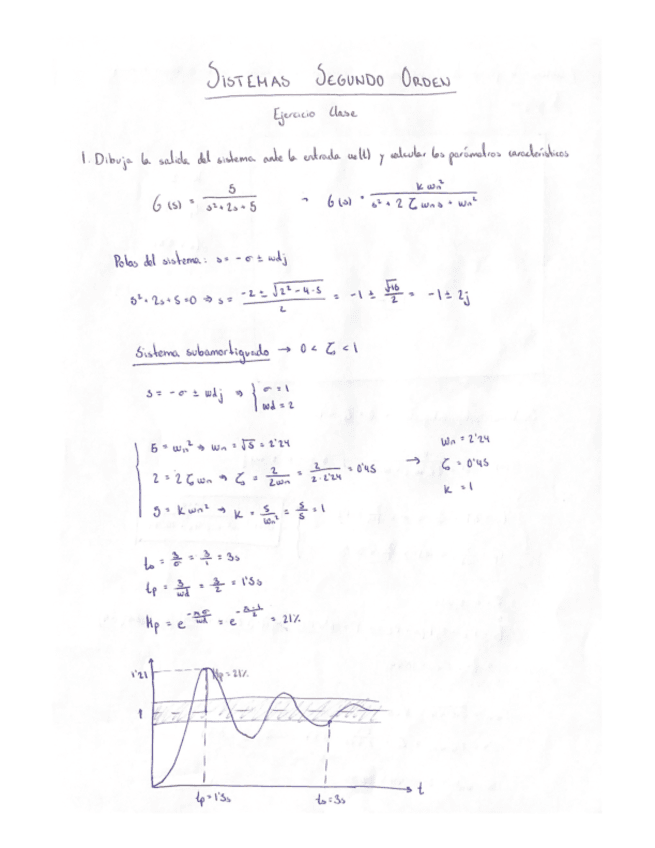 SISTEMAS SEGUNDO ORDEN
Ejercicio Clase
1. Dibuja la salida del sistema ante la entrada u(t) y calcular los parámetros característicos
G(s) = 5 / (s² + 2s + 5) → G(s) = k wn² / (s² + 2 ζ wn s + wn²)
Polos del sistema: s = -σ ± wdj
s² + 2s + 5 = 0 ⇒ s = (-2 ± √(2² - 4·5)) / 2 = -1 ± √16 / 2 = -1 ± 2j
Sistema subamortiguado → 0 < ζ < 1
s = -σ ± wdj ⇒ { σ = 1
wd = 2
5 = wn² → wn = √5 = 2'24
2 = 2 ζ wn → ζ = 2 / 2wn = 2 / 2·2'24 = 0'45
5 = k wn² → k = 5 / wn² = 5/5 = 1
→ wn = 2'24
ζ = 0'45
k = 1
ts = 3/σ = 3/1 = 3s
tp = 3/wd = 3/2 = 1'5s
Mp = e^(-πσ/wd) = e^(-π·1/2) = 21%
1'21
Mp = 21%
1
t
tp = 1'5s
ts = 3s